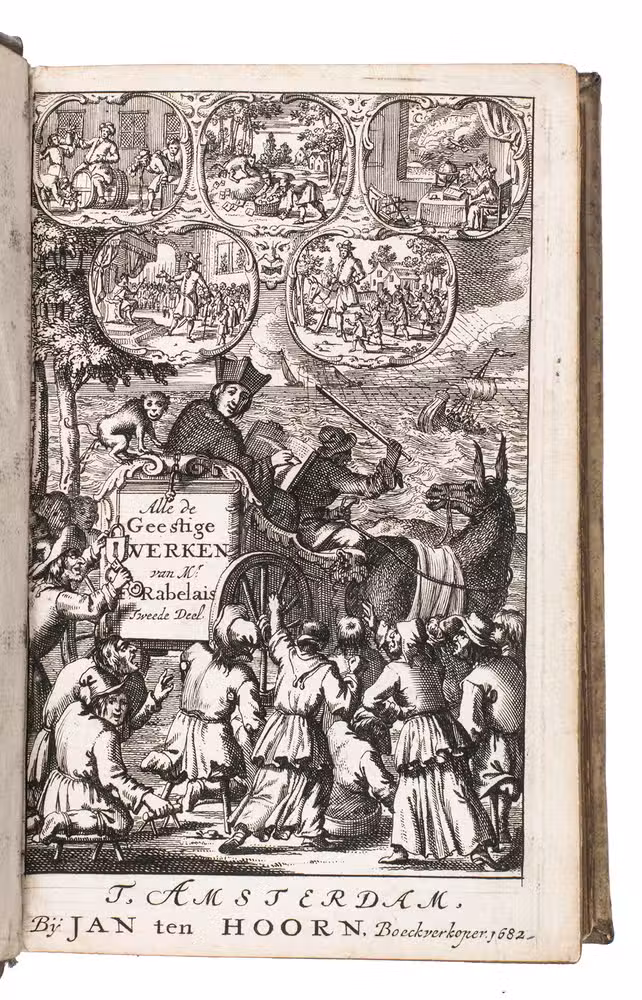 Alle de
Geestige
WERKEN
van Mr.
F Rabelais
Tweede Deel.
T, AMSTERDAM,
Bÿ JAN ten HOORN, Boeckverkoper. 1682.